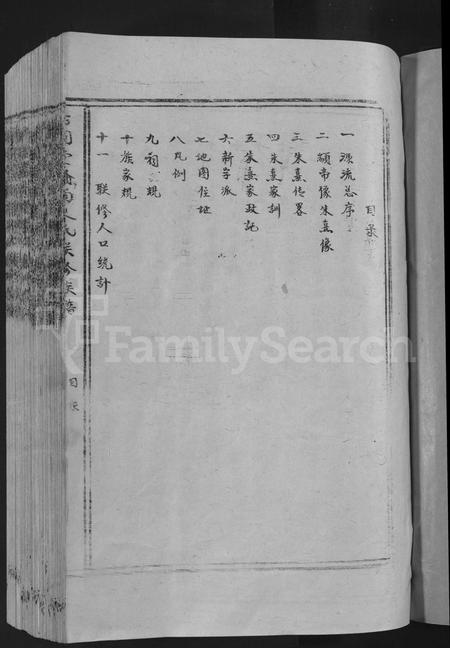 目录
一 源流总序
二 颛帝像朱熹像
三 朱熹传略
四 朱熹家训
五 朱熹家政记
六 新字派
七 地图住址
八 凡例
九 祠 规
十 族家规
十一 联修人口统计
氏联修族谱
目录
FamilySearch